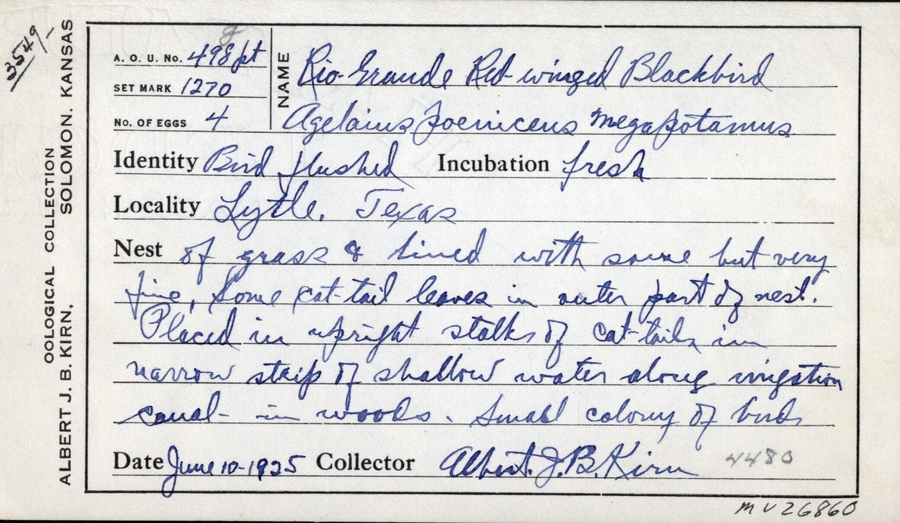 3549/-
OOLOGICAL COLLECTION
ALBERT J. B. KIRN, SOLOMON, KANSAS
A. O. U. No. 498 pt
NAME Rio-Grande Red-winged Blackbird
SET MARK 1270
No. OF EGGS 4
Agelaius poenicens megapotamus
Identity Bird flushed Incubation fresh
Locality Lytle, Texas
Nest of grass & lined with same but very
fine, some cat-tail leaves in outer part of nest.
Placed in upright stalks of cat-tails in
narrow strip of shallow water along irrigation
canal - in woods. Small colony of birds
Date June 10-1925 Collector Albert J. B. Kirn
4480
MV26860